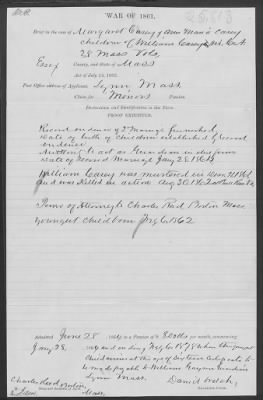 WAR OF 1861.
Brief in the case of Margaret Carey & Ann Maria Carey
children of William Carey
28 Mass Vols
Essex County, and State of Mass
Act of July 14, 1862.
Post Office address of Applicant, Lynn Mass
Claim for Minors Pension.
Declaration and Identification in due Form.
PROOF EXHIBITED.
Record evidence of Marriage furnished
Date of birth of children established by record
evidence
Authority to act as Guardian in due form
Date of second Marriage Jany 28 1864
William Carey was mustered in
and was killed in action Aug 30, 1862
Power of Attorney to Charles Reed Boston Mass
youngest child born 1862
Admitted June 25 1864, to a Pension of 8 00 per month, commencing
Jany 28 1864 and ending 1878 when the youngest
child arrives at the age of sixteen Certificate to
be made payable to William Guardian
Lynn Mass.
Charles Reed Boston
Mass.